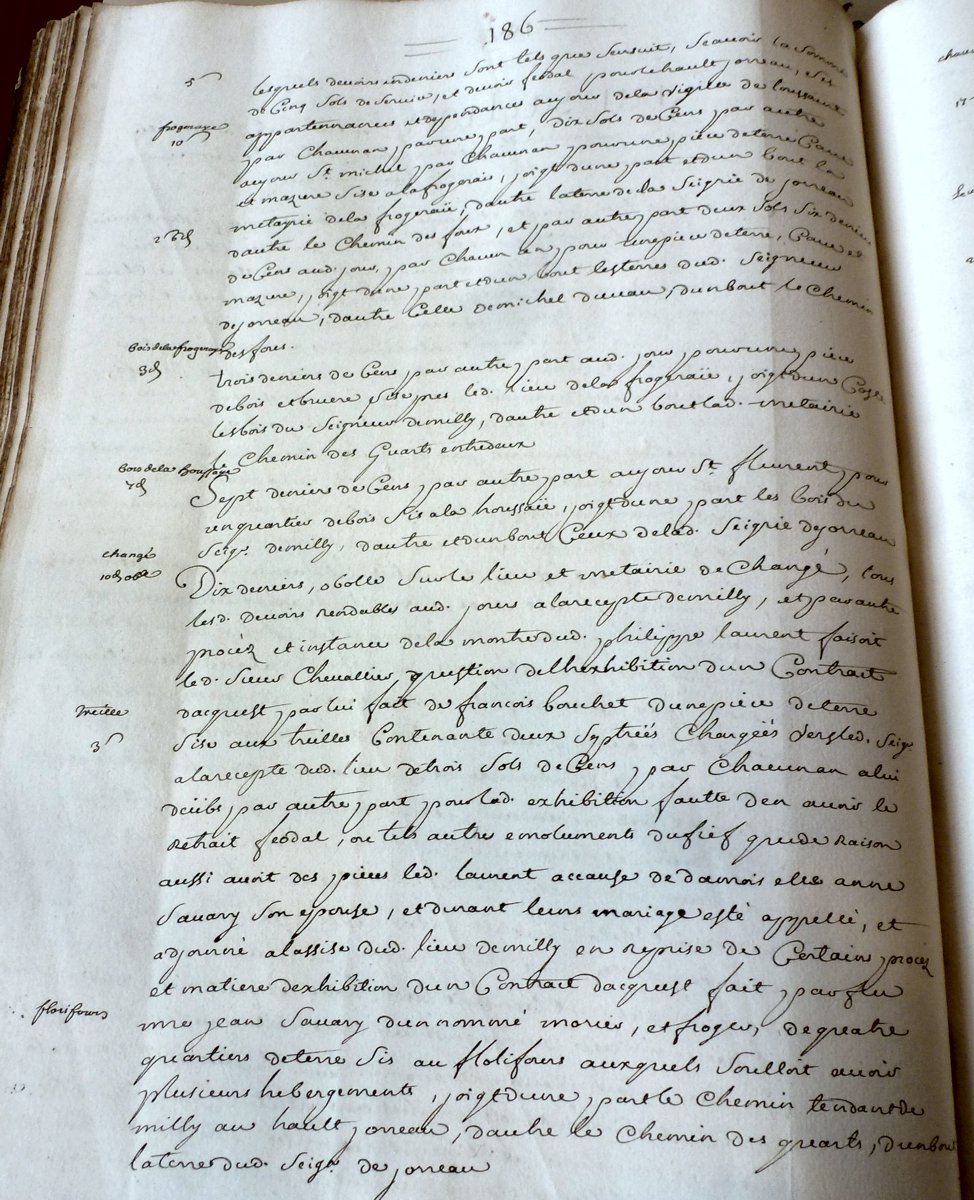 186
lesquels devoirs en deniers sont tels que sensuit, scavoir la somme
5ˢ
de Cinq sols de service, et devoir feodal pour le hault jorreau, ses
appartennances et dependances au jour de la vigille de toussaint
frogeraye
10ˢ
par Chacun an par une part, Dix sols de Cens par autre
au jour Sᵗ. michel par Chacun an pour une pièce de terre Cave
et mazure sise a la frogeraie, joigt dune part et dun bout la
metayrie de la frogeraïe, dautre la terre de la Seigrie de jorreau
dautre le Chemin des fours, et par autre part deux sols six deniers
2ˢ 6d
de Cens aud. jour, par Chacun an pour une piece de terre, Cave et
mazure, joigt dune part et dun bout les terres dud. Seigneur
de jorreau, dautre Celle de michel duveau, dun bout le Chemin
des fours.
bois de la frogeraye
3d
trois deniers de Cens par autre part aud. jour pour une pièce
de bois et bruere sise pres led. lieu de la frogeraïe, joigt dun Costé
les bois du Seigneur de milly, dautre et dun bout lad. metairie
le Chemin des Quarts entredeux
bois de la houssaye
7d
Sept deniers de Cens par autre part au jour Sᵗ. fleurent pour
un quartier de bois sis a la houssaie, joigt dune part les bois du
Seigʳ. de milly, dautre et dun bout Ceux de lad. Seigrie de jorreau
changé
10d obole
Dix deniers, obolle sur le lieu et metairie de Changé, tous
lesd. devoirs rendables aud. jours a la recepte de milly, et par autre
procéz et instance de la montre dud. philippe laurent faisoit
led. sieur Chevallier question de lhexhibition dun Contract
dacquest par lui fait de francois bouchet dune piece de terre
treille
3ˢ
sise aux treilles Contenante deux Sexptréés Chargéés vers led. Seigʳ
a la recepte dud. lieu de trois sols de Cens par Chacun an a lui
deübs par autre part pour lad. exhibition fautte den avoir le
Retrait feodal, ou tels autre emoluments du fief que de Raison
aussi avoit des pieces led. laurent a cause de damoiselle anne
Savary son epouse, et durant leurs mariage esté appellé, et
adjourné a lassise dud. lieu de milly en reprise de Certains procéz
et matiere dexhibition dun Contract dacquest fait par feu
florifours
mre jean Savary dun nommé morier, et froger, de quatre
quartiers de terre sis au flolifours auxquels soulloit avoir
plusieurs hebergements, joigt dune part le Chemin tendant de
milly au hault jorreau, dautre le Chemin des quarts, dun bout
la terre dud. Seigʳ. de jorreau